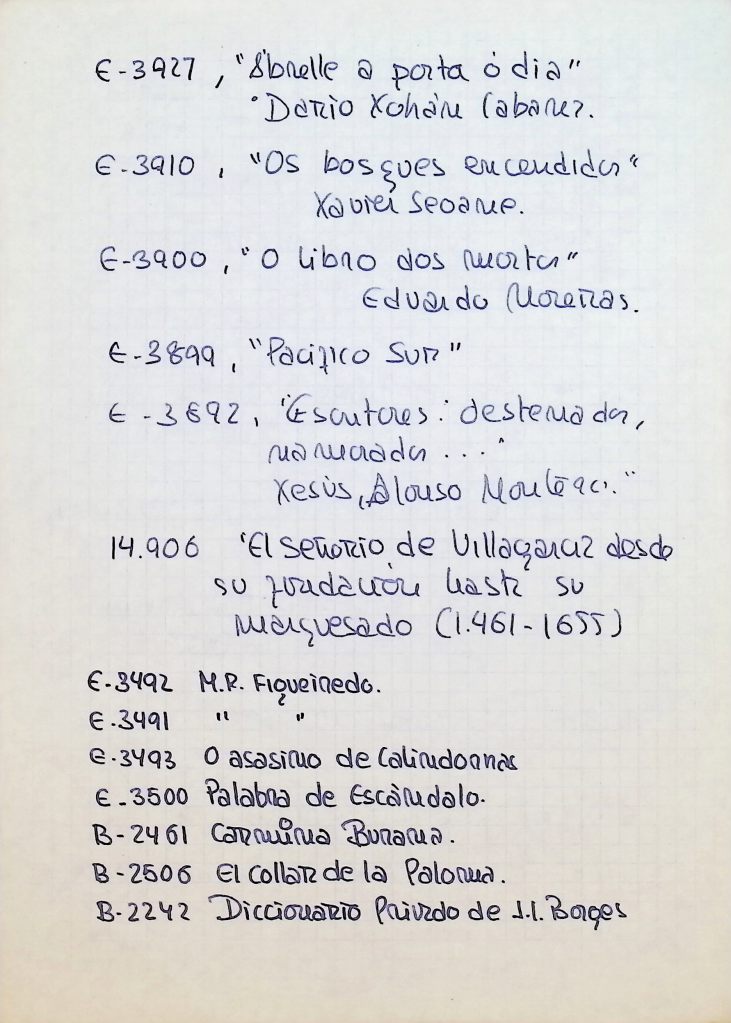 E-3927, "Ábrelle a porta ó dia"
Dario Xohán Cabanez.
E-3910, "Os bosques encendidos"
Xavier Seoane.
E-3900, "O libro dos mortos"
Eduardo Moreiras.
E-3899, "Pacifico Sur"
E-3892, "Escritores: desterrados,
namorados ..."
Xesús, Alonso Montero."
14.906 "El señorio de Villagarcia desde
su fundación hasta su
marquesado (1.461-1655)
E-3492 M.R. Figueiredo.
E-3491 " "
E-3493 O asasino de
E-3500 Palabra de Escándalo.
B-2461 Carmina Burana.
B-2506 El collar de la Paloma.
B-2242 Diccionario Privado de J.L. Borges